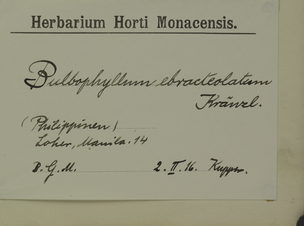 Herbarium Horti Monacensis.
Bulbophyllum ebracteolatum
Kränzl.
(Philippinen)
Loher, Manila. 14
B. G. M. 2. II. 16. Kupper.